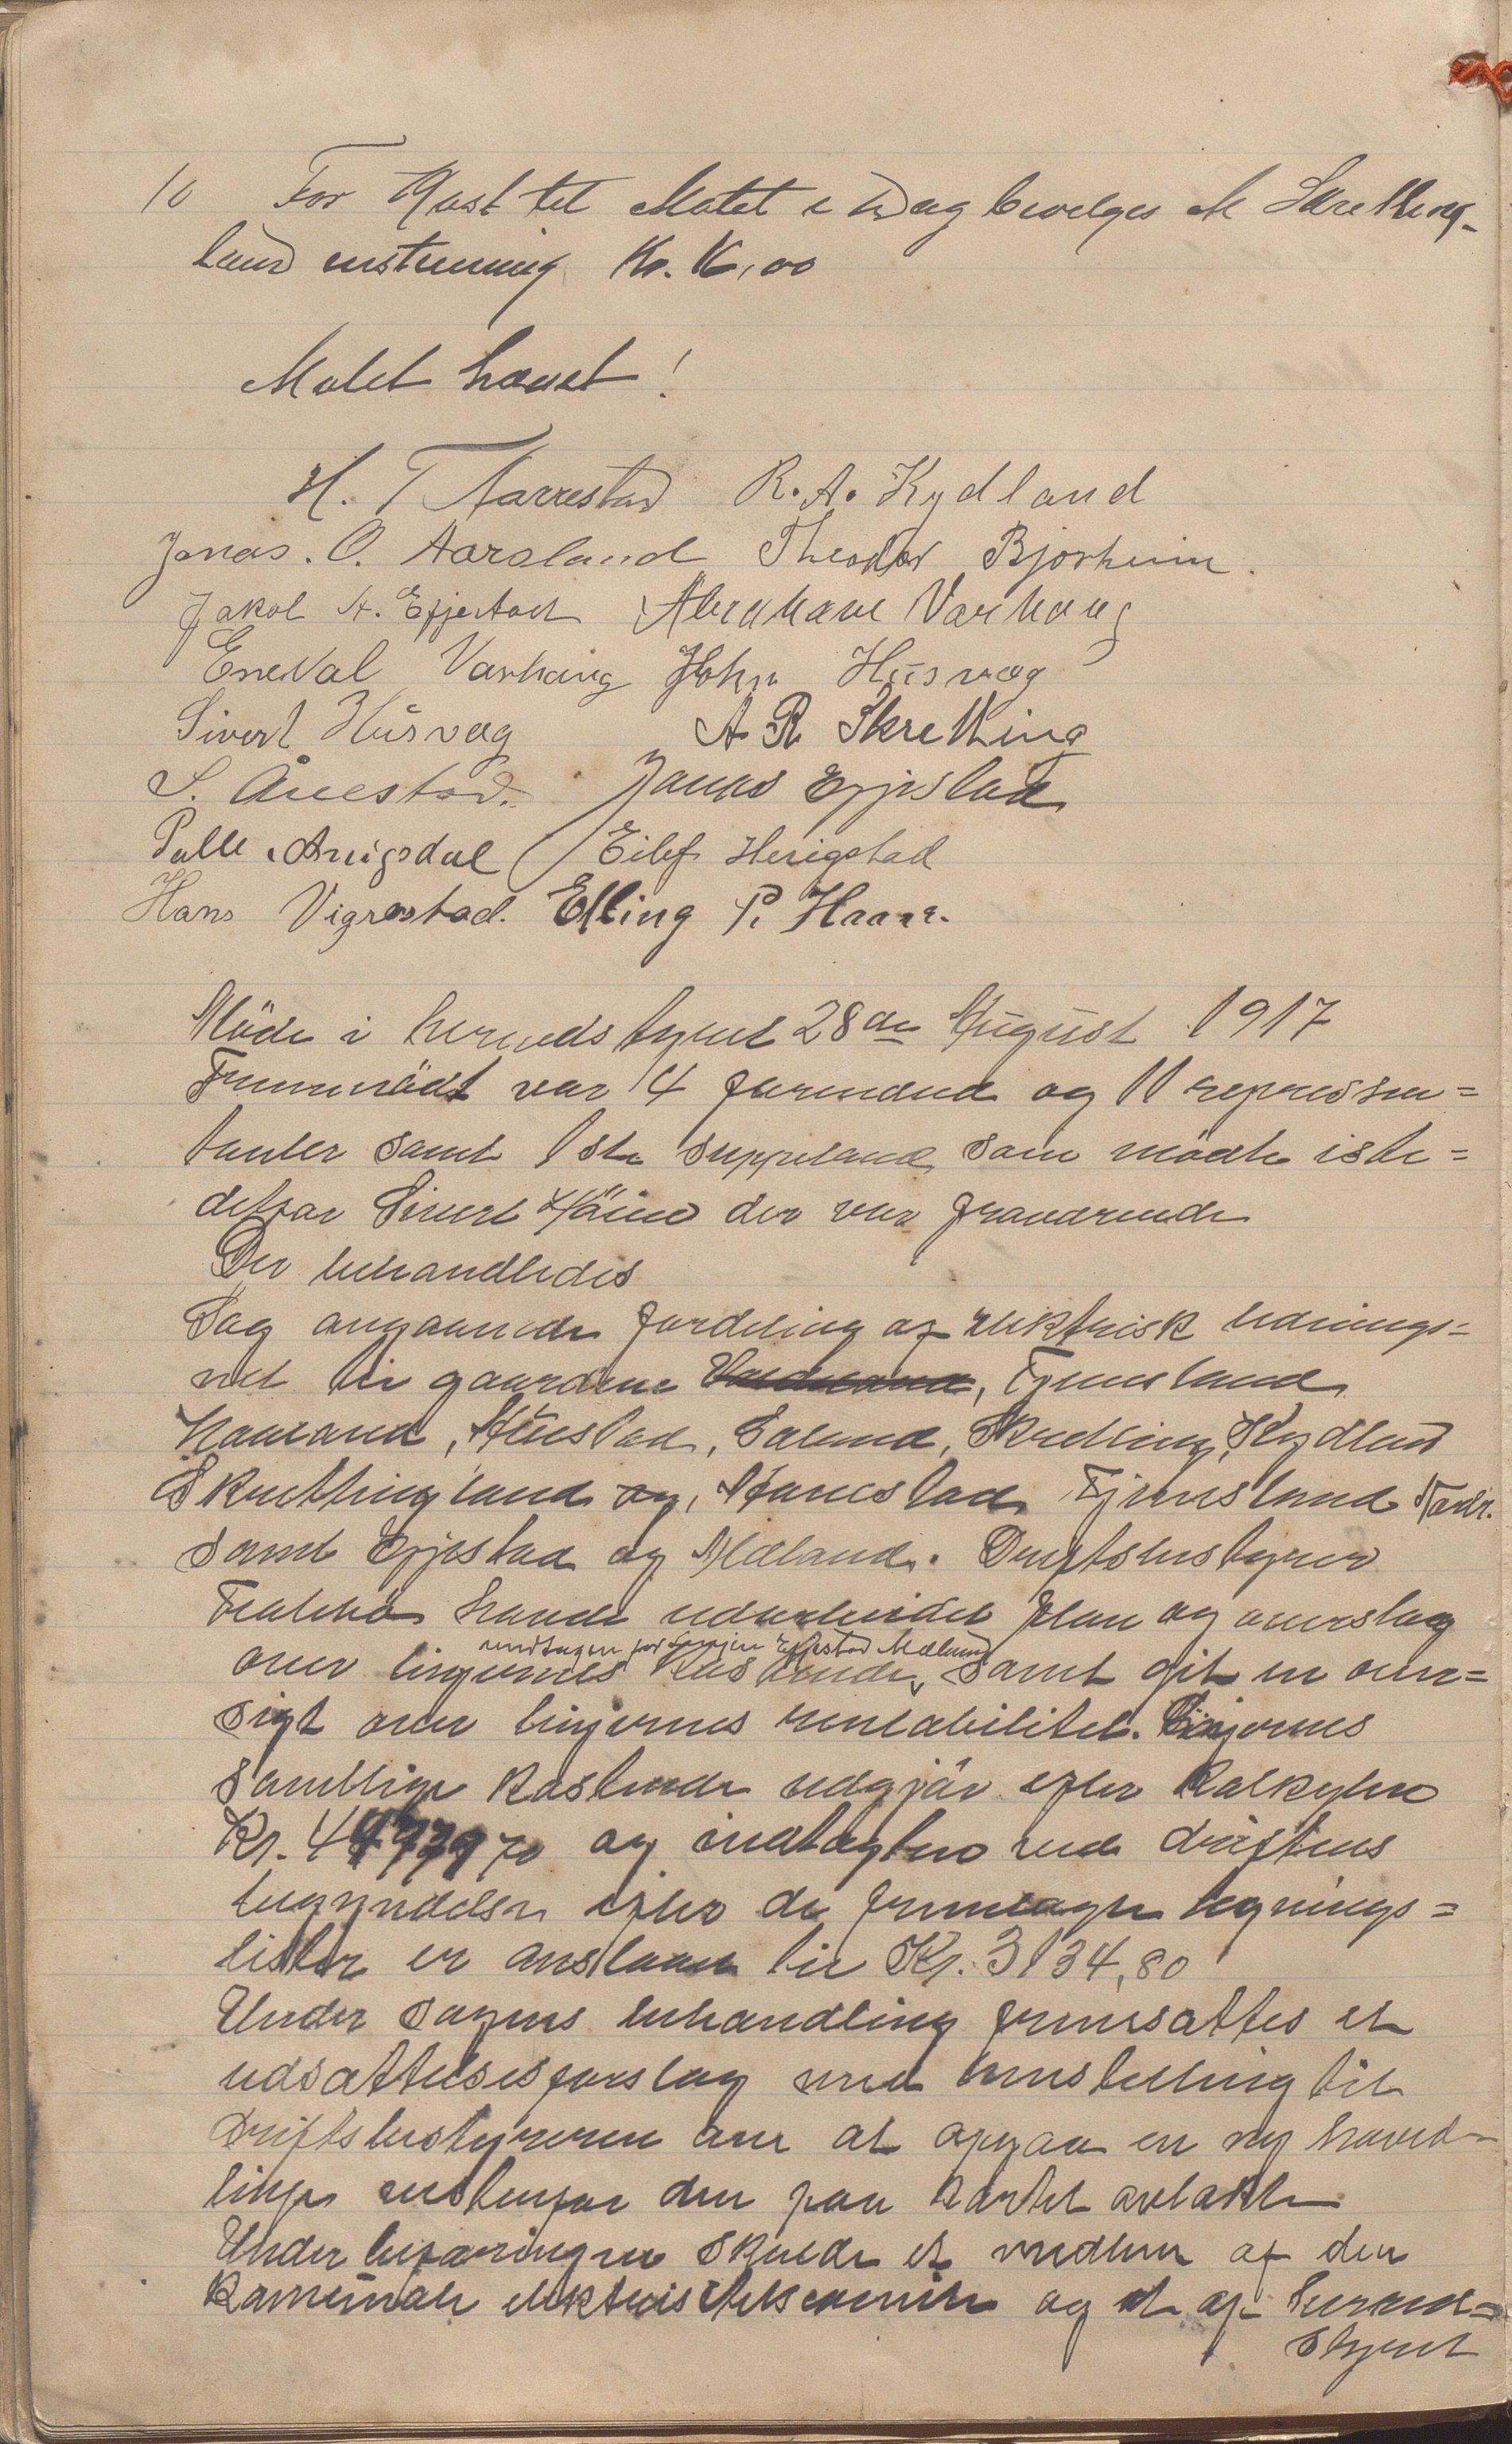 10 For Kost til Møtet i Dag bevelges M Skretting-
land enstemmig Kr. 16,00
Møtet hævet!
H. T Aarrestad R. A. Kydland
Jonas. O. Aarsland Theodor Bjorheim.
Jakob A. Eppjestad Abraham Varhaug
Eneval Varhaug John Husvæg
Sivert Husvæg A R Skretting
S. Ånestad. Jonas Egjestad
Palle Anigsdal Eilef Herigstad
Hans Vigrestad. Elling P. Haar.
Möde i herredstyret 28de August 1917
Fremmödt var 4 formænd og 11 repræsen=
tanter samt 1ste suppleant som mödte iste=
detfor Sivert Höiland der var fraværende
Der behandledes
Sag angaaende fordeling af elektrisk lednings=
net til gaardene, Tjensland
Haarand, Aanestad, Ødemd, Skretting, Kydland
Skrettingland og, Aanestad Tjensland Nordr.
samt Egjestad og Mæland. Driftsbestyrer
havde udarbeidet plan og overslag
undtagen for linjen Egjestad Mæland
over linjernes kostende, samt git en over=
sigt over linjernes rentabilitet. Linjernes
samtlige kostende udgjör efter kalkylen
Kr. og indtægten ved driftens
begyndelse efter de fremlagte tegnings=
lister er anslaaet til Kr. 3134,80
Under sagens behandling fremsattes et
udsættelsesforslag med henstilling til
driftsbestyreren om at opgaa en ny hoved-
linje østenfor den paa kartet avlakte
Under befaringen skulde et medlem af den
kommunale elektrisitetskomite og et af herred=
styret